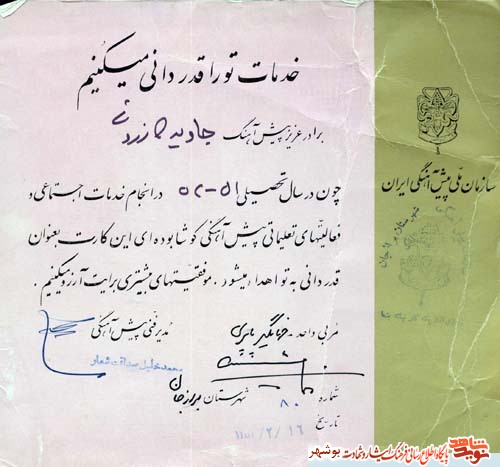 خدمات تو را قدردانی میکنیم
برادر عزیز پیش آهنگ جاوید
چون در سال تحصیلی ۵۱-۵۲ در انجام خدمات اجتماعی و
فعالیتهای تعلیماتی پیش آهنگی کوشا بوده ای این کارت بعنوان
قدردانی به تو اهداء میشود. موفقیتهای بیشتری برایت آرزو میکنیم.
مربی واحد - جهانگیر
مدیر فنی پیش آهنگی
محمد خلیل صداقت شعار
شماره ۸۰ شهرستان برازجان
تاریخ
سازمان ملی پیش آهنگی ایران
پایگاه اطلاع رسانی فرهنگ ایثار و شهادت بوشهر
نوید شاهد